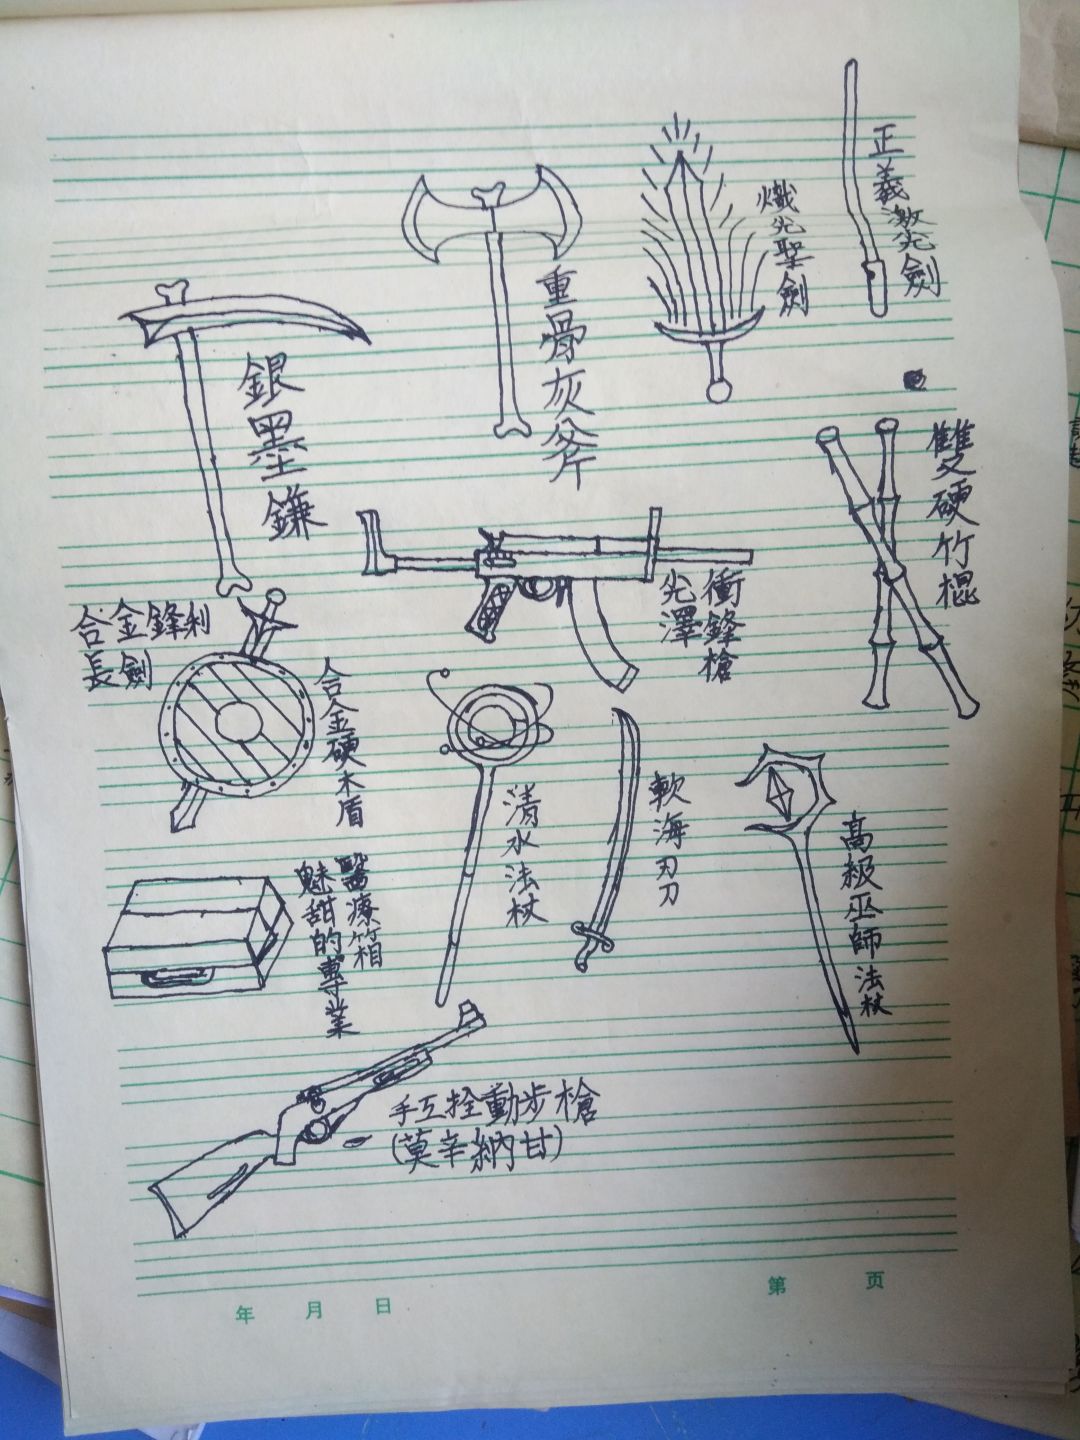 正義激光劍
熾光聖劍
重骨灰斧
銀墨鐮
雙硬竹棍
衝鋒槍
光澤
合金鋒利
長劍
合金硬木盾
清水法杖
軟海刃刀
高級巫師法杖
醫療箱
魅甜的專業
手工拴動步槍
(莫辛納甘)
年 月 日
第 页